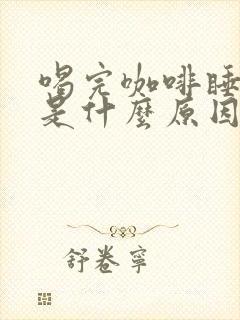 喝完咖啡睡
是什麼原因
舒卷寧